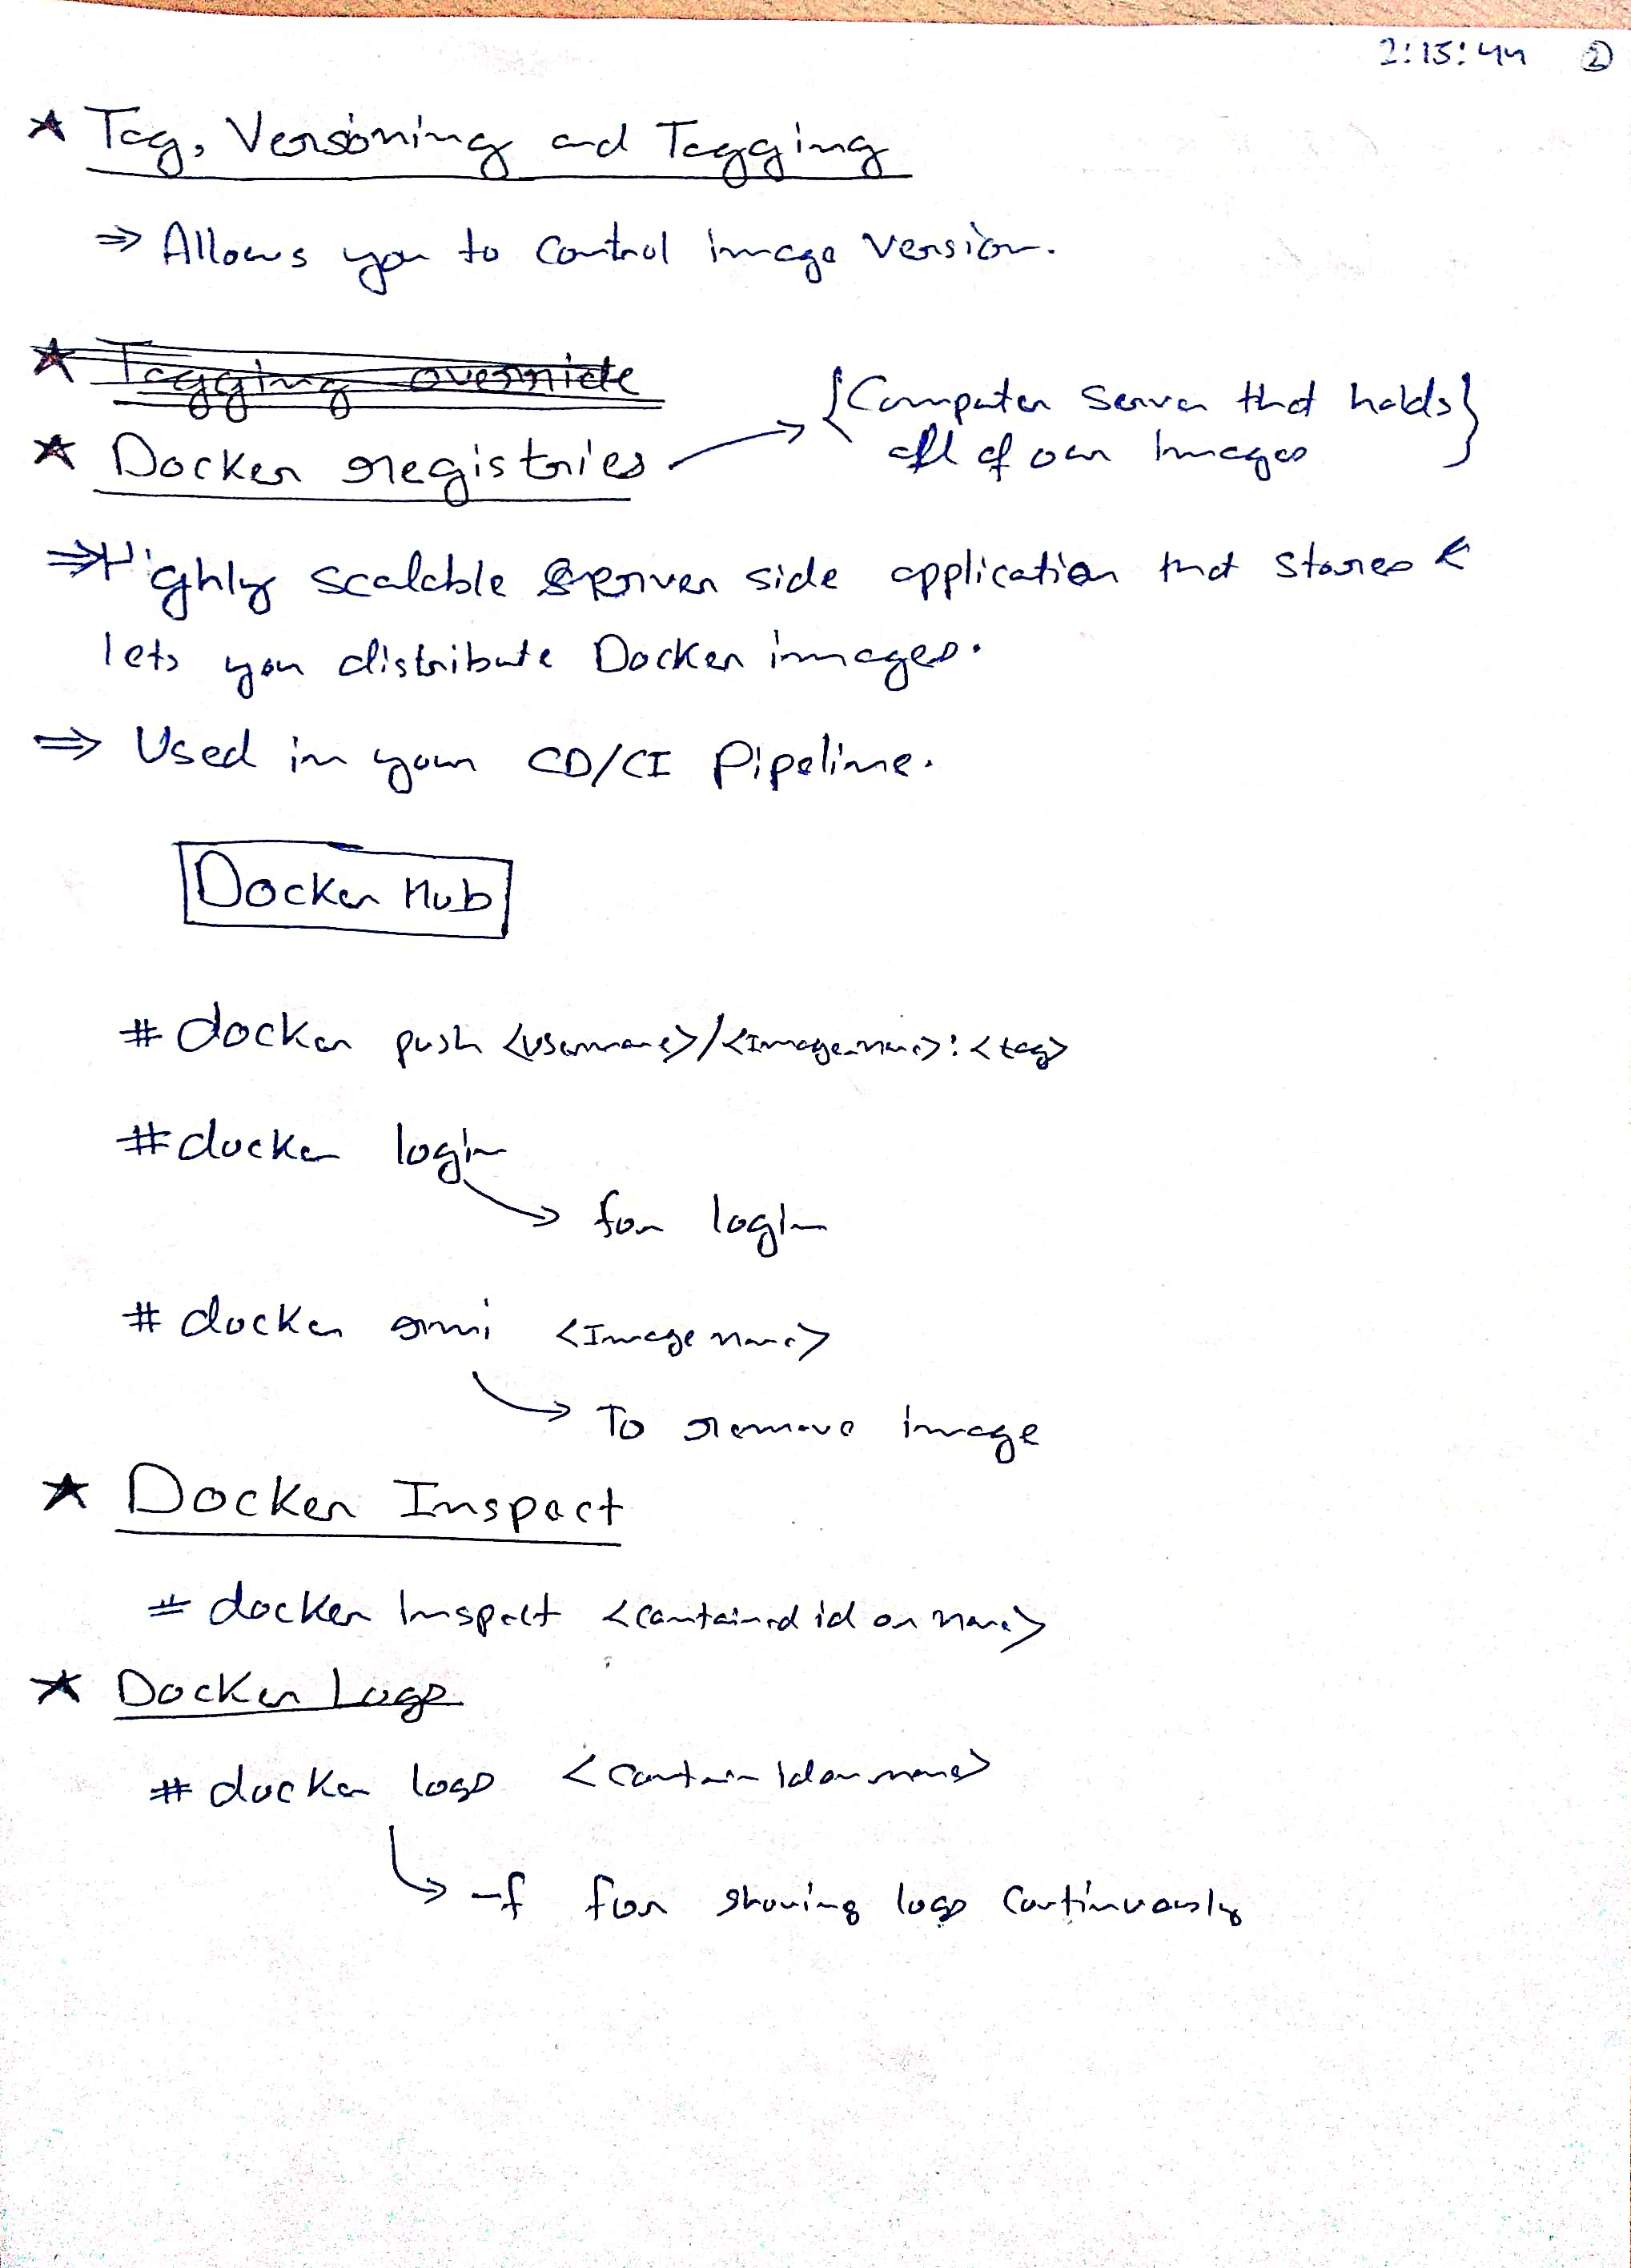 2:15:44 ②
★ Tag, Versioning and Tagging
⇒ Allows you to Control image Version.
★ Tagging override
{Computer Server that holds}
all of our Images
★ Docker registries →
⇒ Highly scalable server side application that stores &
lets you distribute Docker images.
⇒ Used in your CD/CI Pipeline.
Docker Hub
# docker push <username>/<Image_name>:<tag>
# docker login
→ for login
# docker rmi <Image name>
→ To remove image
★ Docker Inspect
# docker Inspect <contained id or name>
★ Docker Logs
# docker logs <contain Id or name>
→ -f for showing logs Continuously